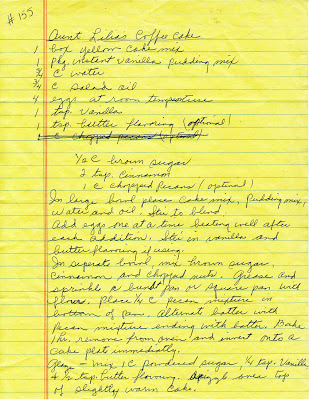 # 155
Aunt Lila's Coffee Cake
1 box yellow cake mix
1 pkg instant vanilla pudding mix
3/4 C water
3/4 C salad oil
4 eggs at room temperature
1 tsp. vanilla
1 tsp. butter flavoring (optional)
1 C chopped pecans (optional)
1/2 C brown sugar
2 tsp. cinnamon
1 C chopped pecans (optional)
In large bowl place cake mix, pudding mix,
water and oil. Stir to blend.
Add eggs one at a time beating well after
each addition. Stir in vanilla and
butter flavoring if using.
In seperate bowl, mix brown sugar,
cinnamon and chopped nuts. Grease and
sprinkle a bundt pan or square pan with
flour. Place 1/4 C pecan mixture in
bottom of pan. Alternate batter with
pecan mixture ending with batter. Bake
1 hr. remove from oven and invert onto a
cake plate immediately.
Glaze - mix 1 C powdered sugar, 1/4 tsp. Vanilla
+ 1/2 tsp. butter flavoring. over top
of slightly warm cake.